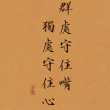 群處守住嘴
獨處守住心